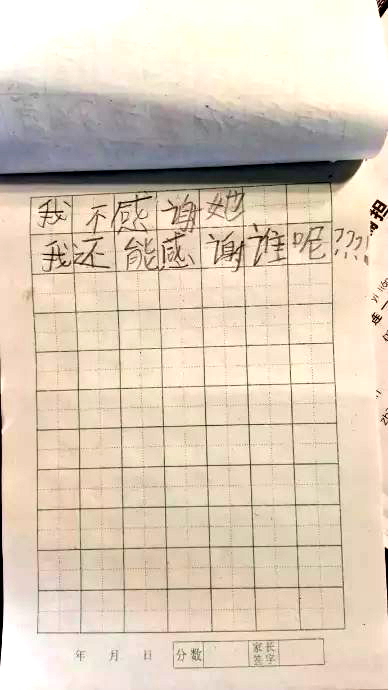 我不感谢她
我还能感谢谁呢????
年 月 日 分数 家长签字
担